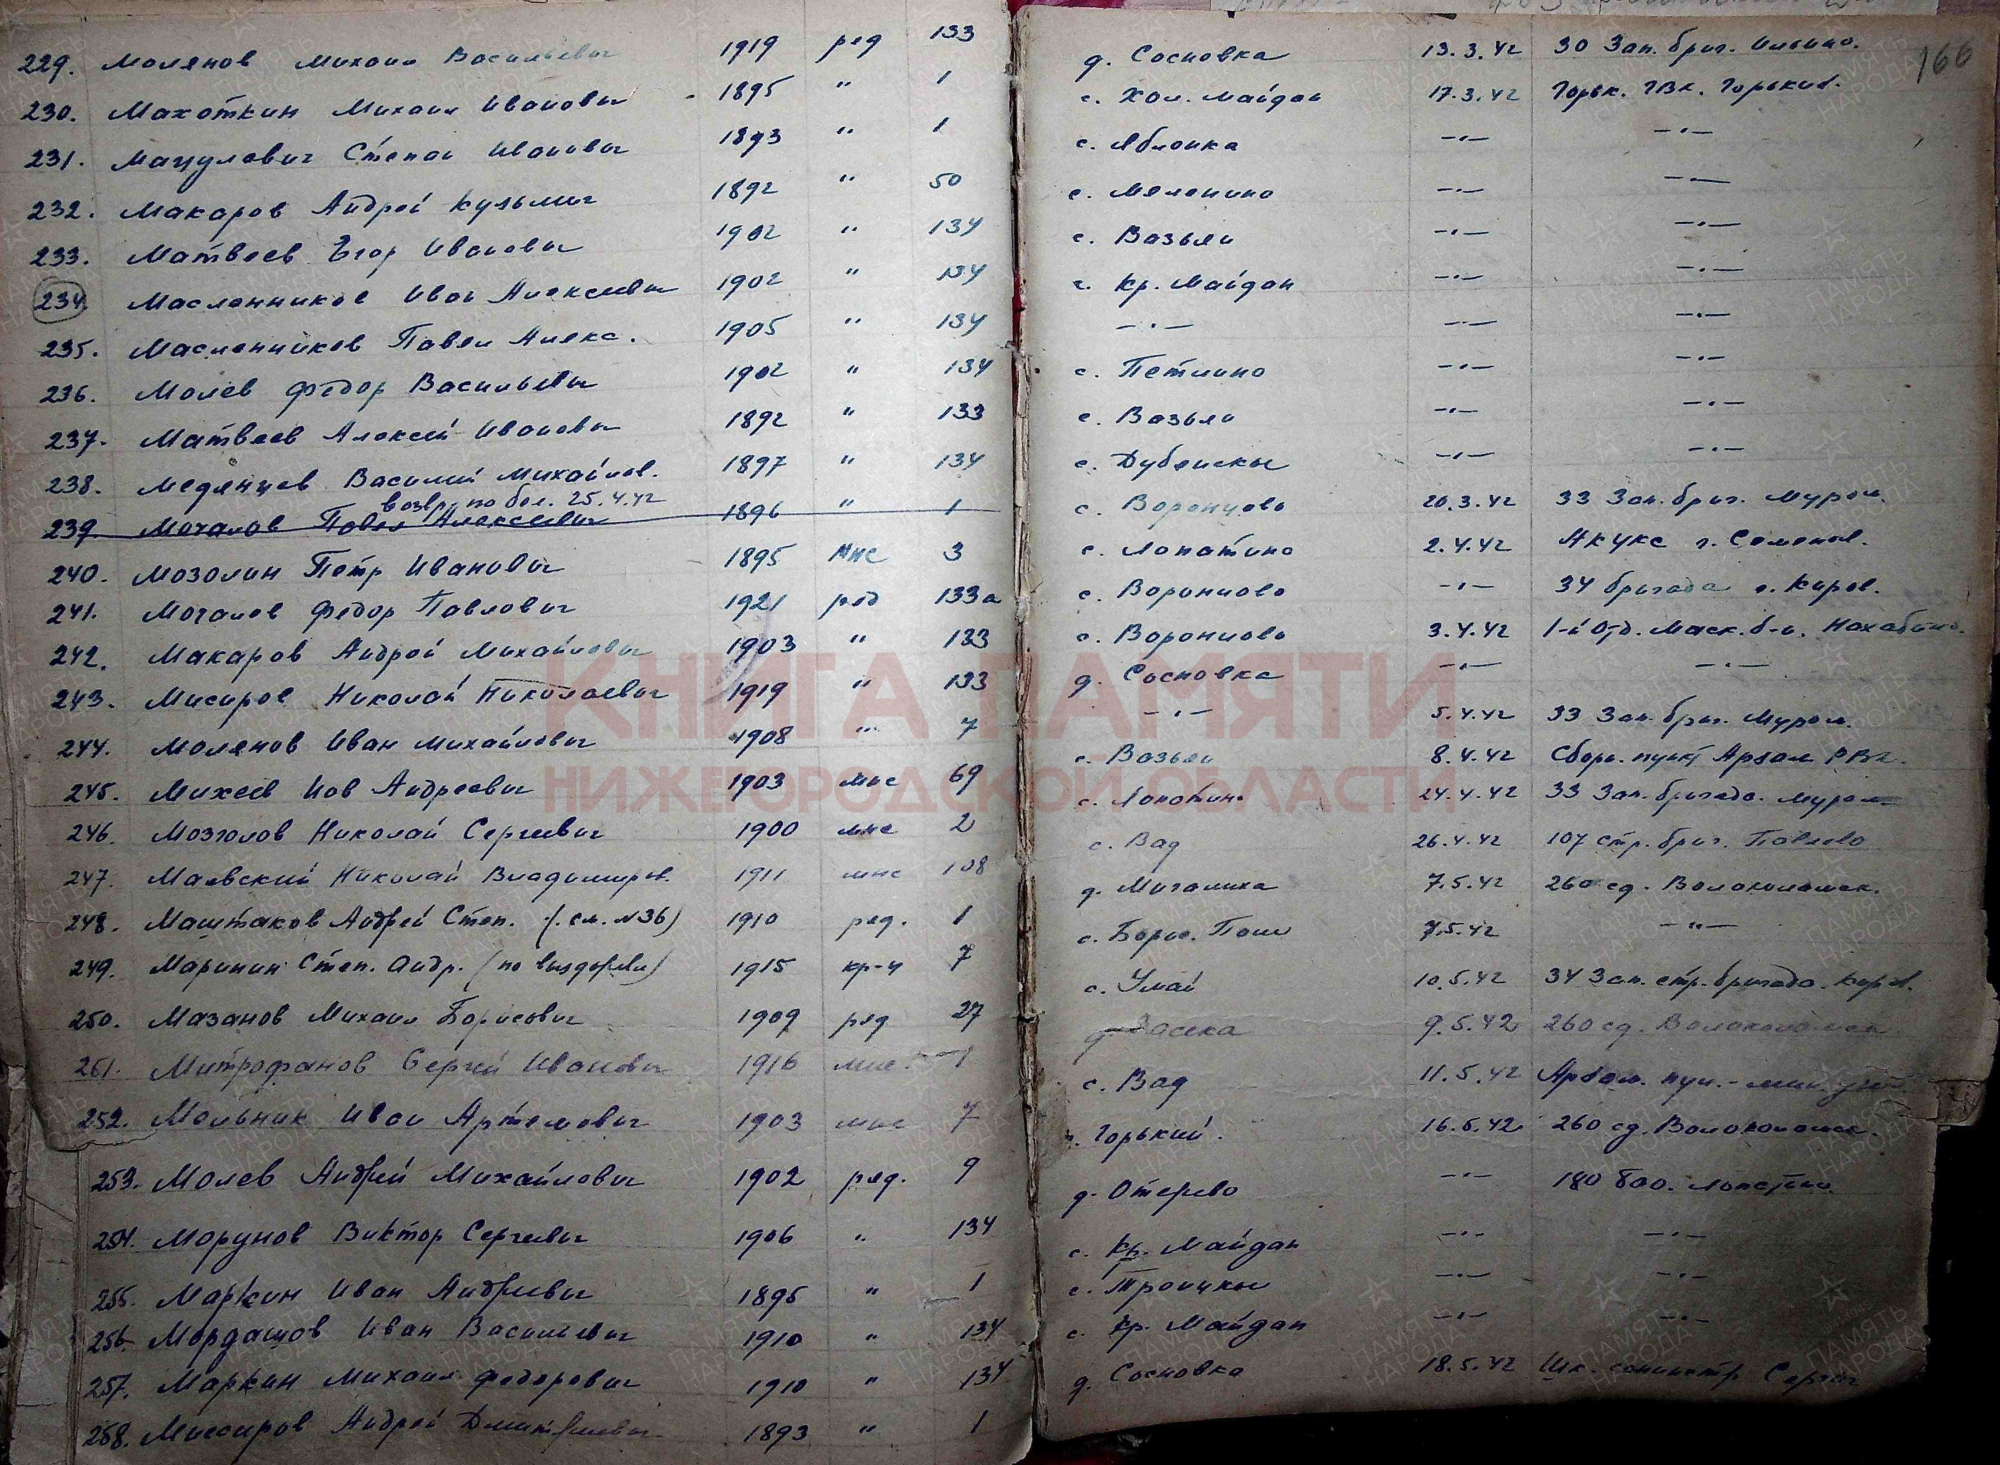 166
229. Молянов Михаил Васильевич 1919 ряд 133 д. Сосновка 13.3.42 30 Зап. бриг. Ильино.
230. Махоткин Михаил Иванович 1895 " 1 с. Хол. Майдан 17.3.42 Горьк. ГВК. Горький.
231. Мацулевич Степан Иванович 1893 " 1 с. Яблонка —·— —·—
232. Макаров Андрей Кузьмич 1892 " 50 с. Меленино —·— —·—
233. Матвеев Егор Иванович 1902 " 134 с. Вазьян —·— —·—
234. Масленников Иван Алексеевич 1902 " 134 с. Кр. Майдан —·— —·—
235. Масленников Павел Алекс. 1905 " 134 —·— —·— —·—
236. Молев Федор Васильевич 1902 " 134 с. Петлино —·— —·—
237. Матвеев Алексей Иванович 1892 " 133 с. Вазьян —·— —·—
238. Медянцев Василий Михайлов. 1897 " 134 с. Дубенские —·— —·—
возвр. по бол. 25.4.42
239 Мочалов Павел Алексеевич 1896 " 1 с. Воронцово 20.3.42 33 Зап. бриг. Муром.
240. Мозолин Петр Иванович 1895 мнс 3 с. Лопатино 2.4.42 АКУКС г. Семенов.
241. Мочалов Федор Павлович 1921 ряд 133а с. Воронцово —·— 34 бригада г. Киров.
242. Макаров Андрей Михайлович 1903 " 133 с. Воронцово 3.4.42 1-й Отд. Маск. б-н. Нахабино.
243. Мисиров Николай Николаевич 1919 " 133 д. Сосновка —·— —·—
244. Молянов Иван Михайлович 1908 " 7 —·— 5.4.42 33 Зап. бриг. Муром.
245. Михеев Иов Андреевич 1903 мнс 69 с. Вазьян 8.4.42 Сборн. пункт Арзам РВК.
246. Мозголов Николай Сергеевич 1900 мнс 2 с. Лопатино 24.4.42 33 Зап. бригада. Муром
247. Маевский Николай Владимиров. 1911 мнс 108 с. Вад 26.4.42 107 стр. бриг. Павлово
248. Маштаков Андрей Степ. (см. №36) 1910 ряд. 1 д. Мигалиха 7.5.42 260 сд. Волоколамск.
249. Маринин Степ. Андр. (по выздоровл) 1915 кр-ц 7 с. Борис. Поле 7.5.42 —"—
250. Мазанов Михаил Борисович 1909 ряд 27 с. Умай 10.5.42 34 Зап. стр. бригада. Киров.
251. Митрофанов Сергей Иванович 1916 мнс. 1 д. Засека 9.5.42 260 сд. Волоколамск
252. Мельник Иван Артемович 1903 мнс 7 с. Вад 11.5.42 Арзам. пул.-мин. уч
253. Молев Андрей Михайлович 1902 ряд. 9 г. Горький. 16.5.42 260 сд. Волоколамск.
254. Морунов Виктор Сергеевич 1906 " 134 д. Отерево —·— 180 бао.
255. Маркин Иван Андреевич 1895 " 1 с. Кр. Майдан —·— —·—
256. Мордашов Иван Васильевич 1910 " 134 с. Троицкое —·— —·—
257. Маркин Михаил Федорович 1910 " 134 с. Кр. Майдан —·— —·—
258. Миссиров Андрей Дмитриевич 1893 " 1 д. Сосновка 18.5.42 Шк. санинстр Сергач
КНИГА ПАМЯТИ
НИЖЕГОРОДСКОЙ ОБЛАСТИ
ПАМЯТЬ НАРОДА